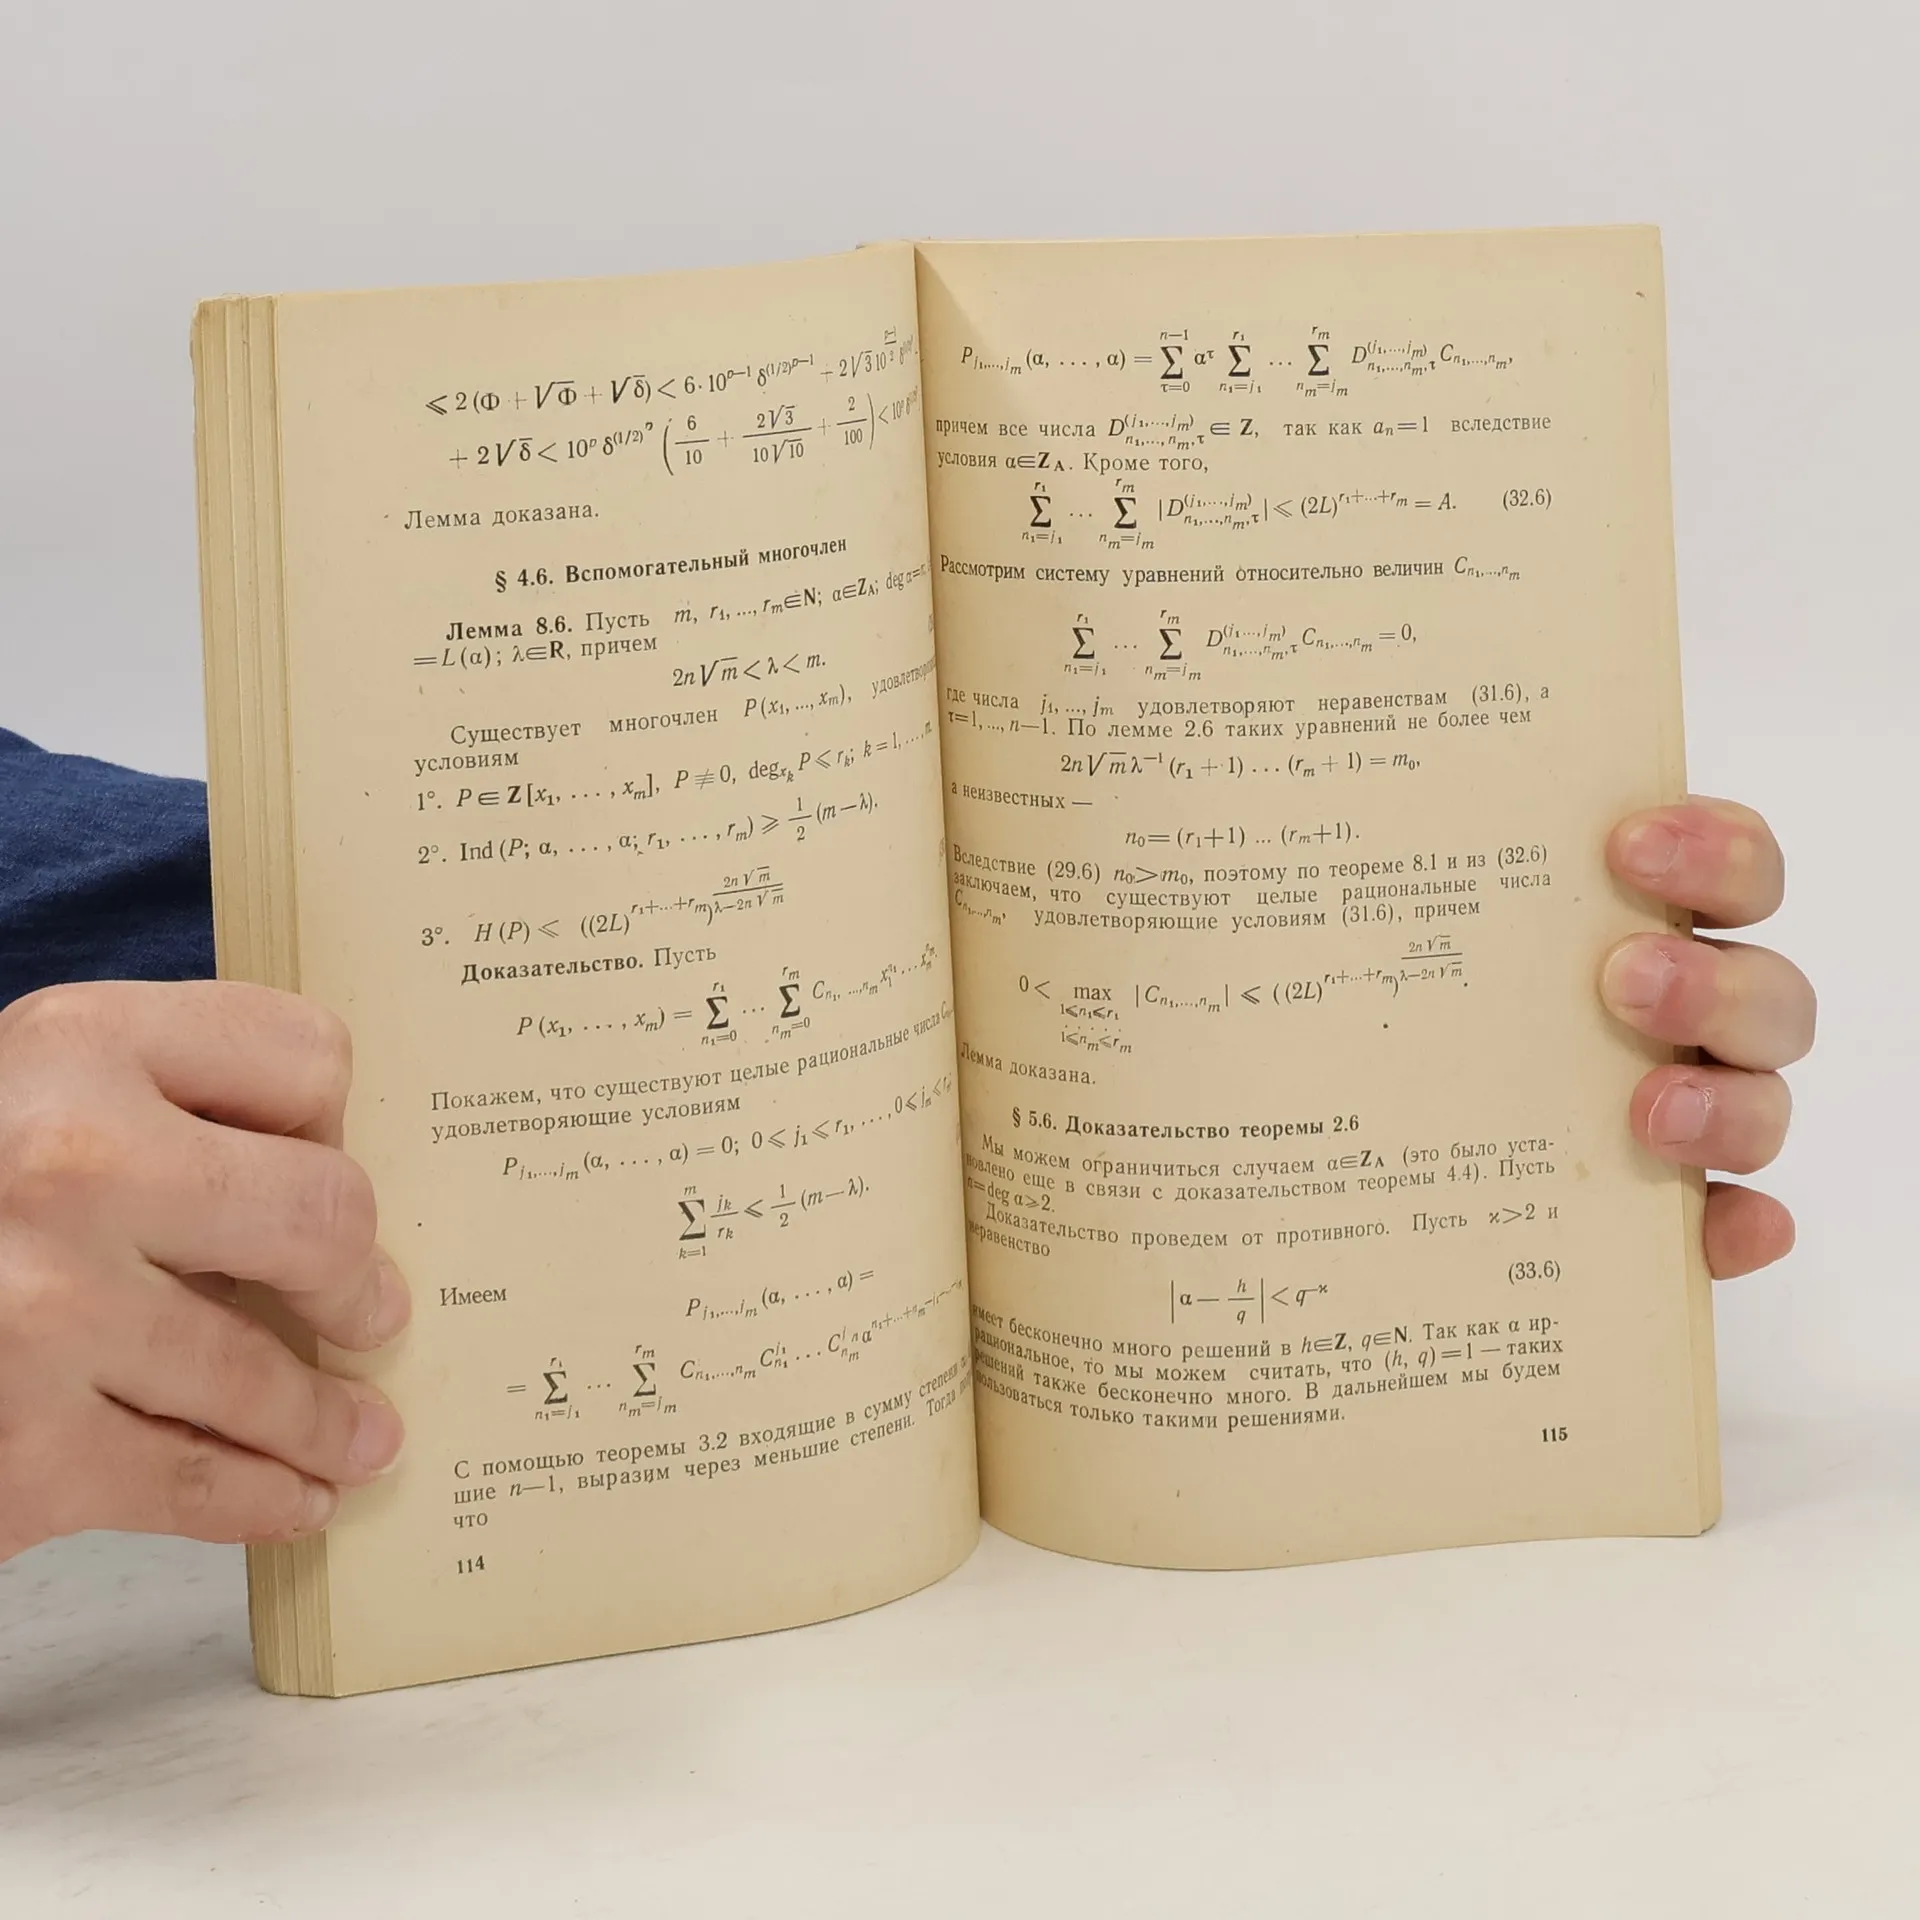 ⩽ 2 (Φ + √Φ + √δ) < 6·10^{p−1} δ^{(1/2)^{p−1}} + 2√3 10
+ 2√δ < 10^p δ^{(1/2)^p} (6/10 + 2√3/(10√10) + 2/100) < 10^p
Лемма доказана.
§ 4.6. Вспомогательный многочлен
Лемма 8.6. Пусть m, r₁, ..., r_m∈N; α∈Z_A; deg α=n,
=L(α); λ∈R, причем
2n√m < λ < m.
Существует многочлен P(x₁, ..., x_m),
условиям
1°. P∈Z[x₁, . . . , x_m], P≢0, deg_{x_k} P⩽r_k; k=1, ..., m.
2°. Ind (P; α, . . . , α; r₁, . . . , r_m) ⩾ 1/2 (m−λ).
3°. H(P) ⩽ ((2L)^{r₁+...+r_m})^{2n√m/(λ−2n√m)}
Доказательство. Пусть
P(x₁, . . . , x_m) = ∑_{n₁=0}^{r₁} ... ∑_{n_m=0}^{r_m} C_{n₁, ...,n_m} x₁^{n₁} ... x_m^{n_m}.
Покажем, что существуют целые рациональные числа
удовлетворяющие условиям
P_{j₁,...,j_m}(α, . . . , α) = 0; 0⩽j₁⩽r₁, . . . , 0⩽j_m⩽r_m;
∑_{k=1}^{m} j_k/r_k ⩽ 1/2 (m−λ).
Имеем
P_{j₁,...,j_m}(α, . . . , α) =
= ∑_{n₁=j₁}^{r₁} ... ∑_{n_m=j_m}^{r_m} C_{n₁,...,n_m} C_{n₁}^{j₁} ... C_{n_m}^{j_m} α^{n₁+...+n_m−j₁−...−j_m}
С помощью теоремы 3.2 входящие в сумму степени
шие n—1, выразим через меньшие степени. Тогда
что
114
P_{j₁,...,j_m}(α, . . . , α) = ∑_{τ=0}^{n−1} α^τ ∑_{n₁=j₁}^{r₁} ... ∑_{n_m=j_m}^{r_m} D_{n₁,...,n_m,τ}^{(j₁,...,j_m)} C_{n₁,...,n_m},
причем все числа D_{n₁,..., n_m,τ}^{(j₁,...,j_m)} ∈ Z, так как a_n=1 вследствие
условия α∈Z_A. Кроме того,
∑_{n₁=j₁}^{r₁} ... ∑_{n_m=j_m}^{r_m} |D_{n₁,...,n_m,τ}^{(j₁,...,j_m)}| ⩽ (2L)^{r₁+...+r_m} = A. (32.6)
Рассмотрим систему уравнений относительно величин C_{n₁,...,n_m}
∑_{n₁=j₁}^{r₁} ... ∑_{n_m=j_m}^{r_m} D_{n₁,...,n_m,τ}^{(j₁...,j_m)} C_{n₁,...,n_m} = 0,
где числа j₁, ..., j_m удовлетворяют неравенствам (31.6), а
τ=1, ..., n—1. По лемме 2.6 таких уравнений не более чем
2n√m λ^{−1} (r₁+1) ... (r_m+1) = m₀,
а неизвестных —
n₀= (r₁+1) ... (r_m+1).
Вследствие (29.6) n₀>m₀, поэтому по теореме 8.1 и из (32.6)
заключаем, что существуют целые рациональные числа
C_{n₁,...,n_m}, удовлетворяющие условиям (31.6), причем
0 < max_{1⩽n₁⩽r₁ . . . . . 1⩽n_m⩽r_m} |C_{n₁,...,n_m}| ⩽ ((2L)^{r₁+...+r_m})^{2n√m/(λ−2n√m)}.
Лемма доказана.
§ 5.6. Доказательство теоремы 2.6
Мы можем ограничиться случаем α∈Z_A (это было уста-
новлено еще в связи с доказательством теоремы 4.4). Пусть
n=deg α⩾2.
Доказательство проведем от противного. Пусть ϰ>2 и
неравенство
|α − h/q| < q^{−ϰ} (33.6)
имеет бесконечно много решений в h∈Z, q∈N. Так как α ир-
рациональное, то мы можем считать, что (h, q)=1 — таких
решений также бесконечно много. В дальнейшем мы будем
пользоваться только такими решениями.
115